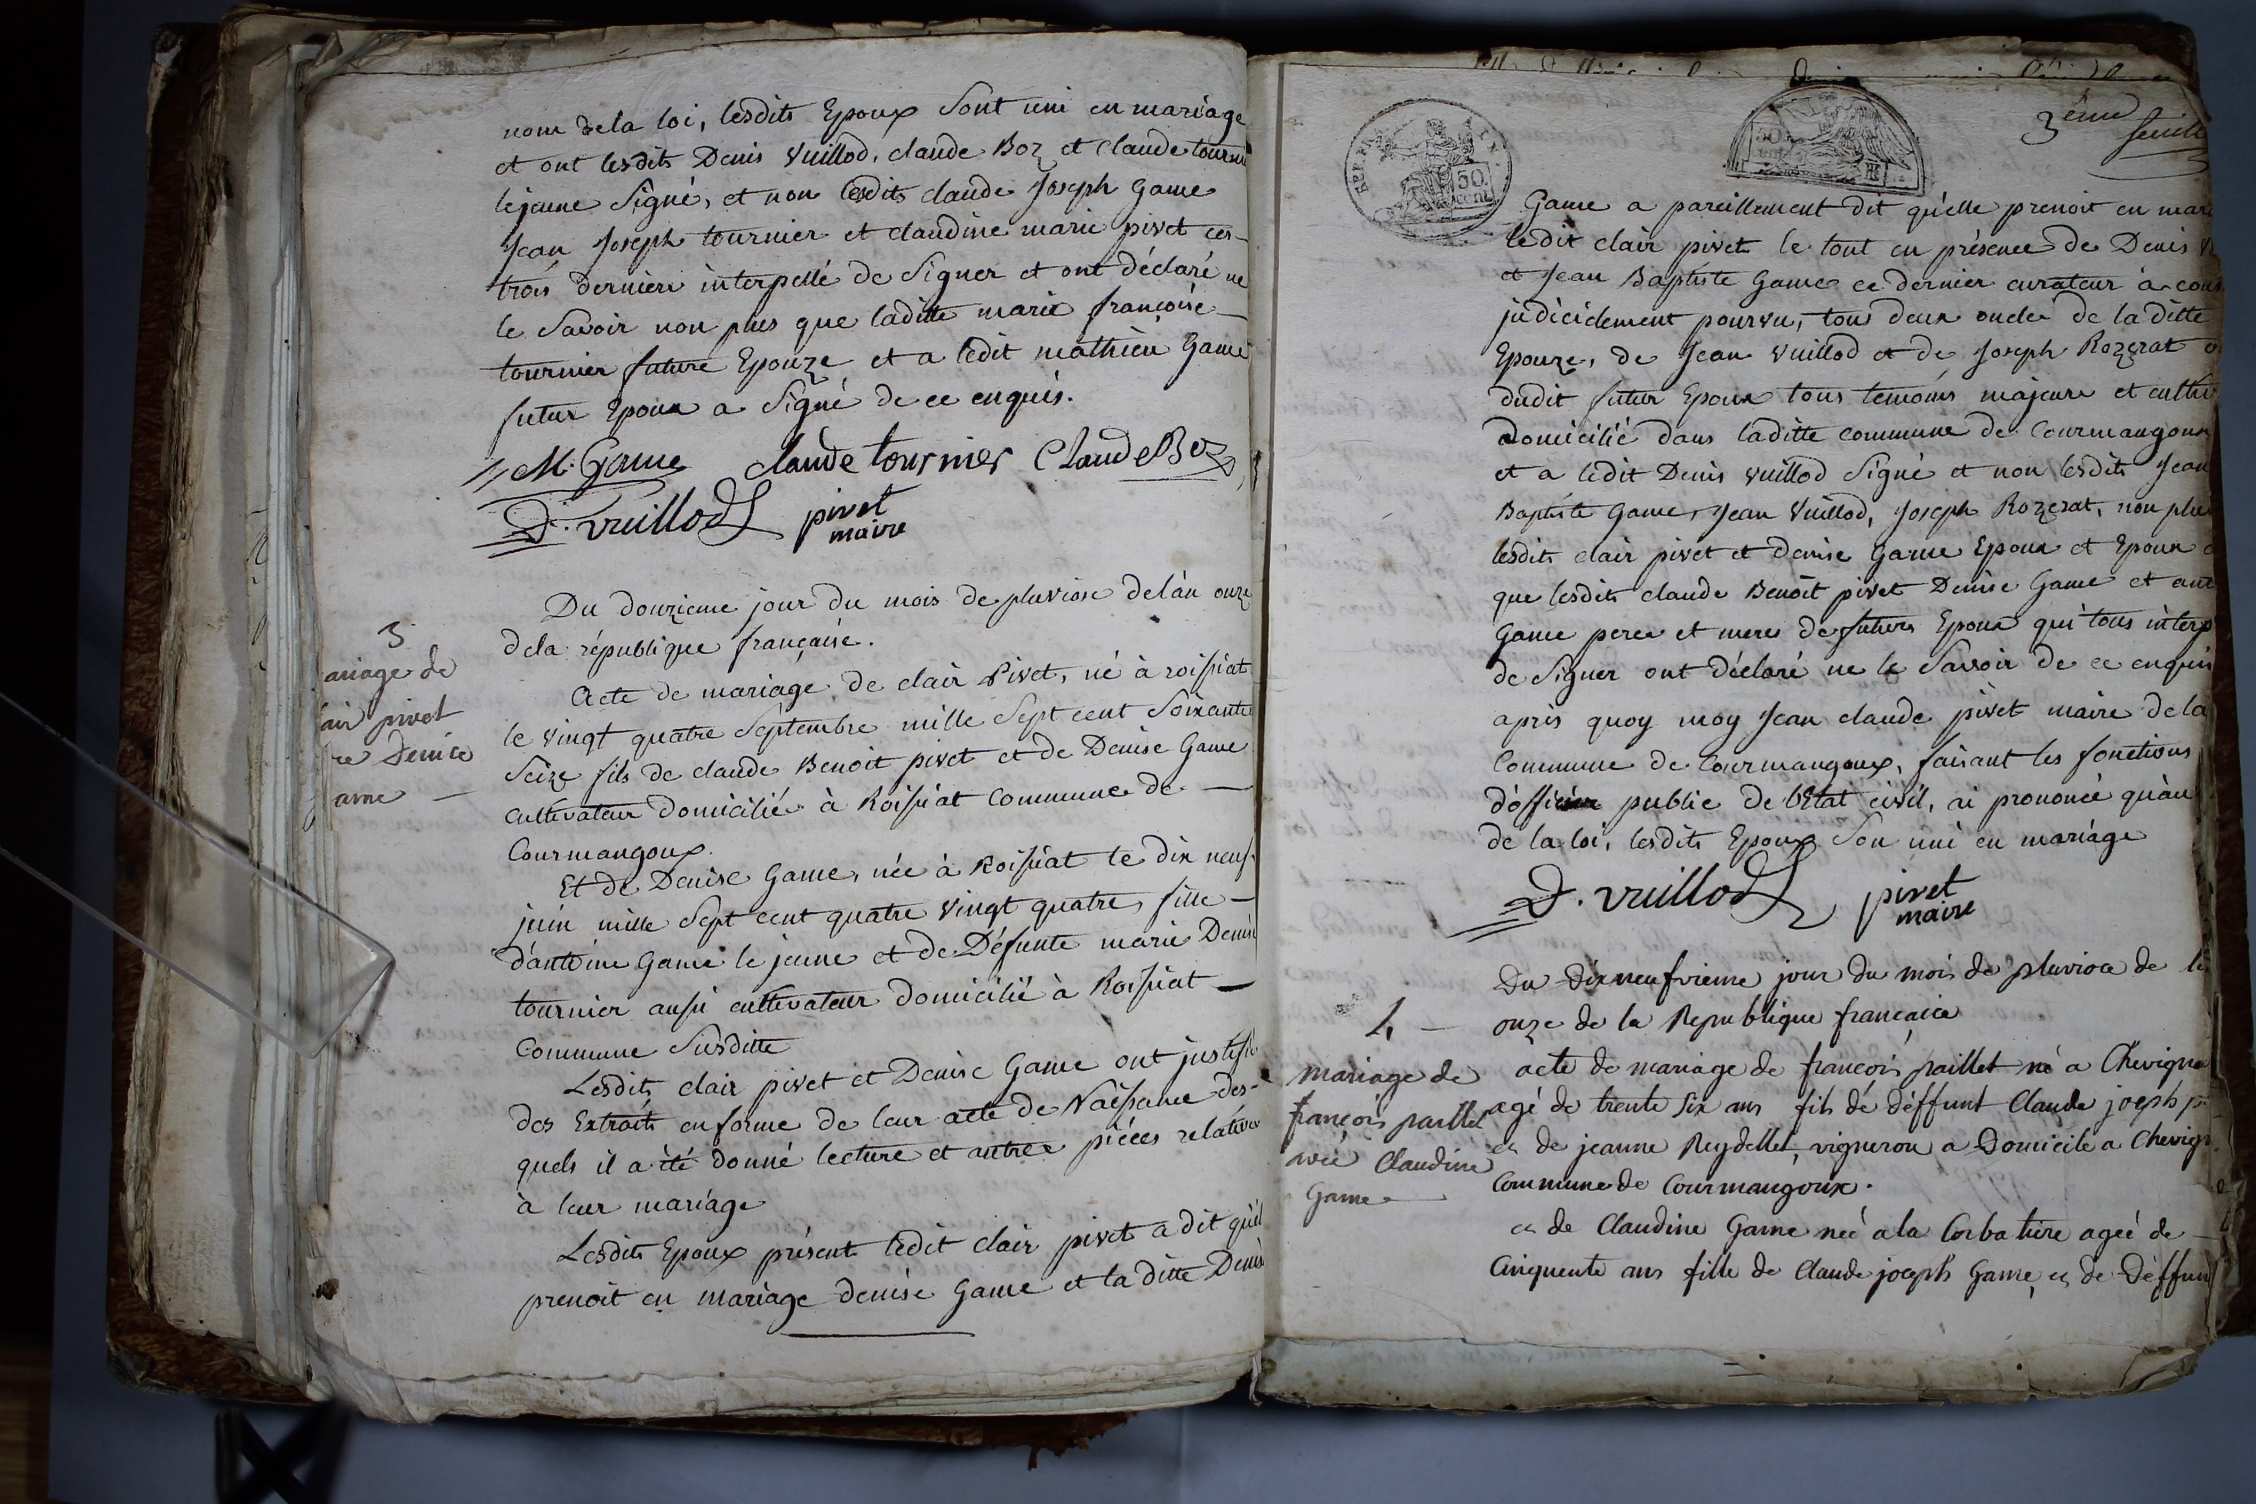 nom de la loi, lesdits Epoux Sont uni en mariage
et ont lesdits Denis Vuillod, claude Boz et Claude tourni
le jeune Signé, et non lesdits claude Joseph Game
Jean Joseph tournier et claudine marie pivet ces
trois derniere interpellé de Signer et ont déclaré ne
le Savoir non plus que laditte marie françoise
tournier future Epouze et a ledit mathieu Game
futur Epoux a Signé de ce enquis.
M. Game claude tournier Claude Boz
D. vuillod pivet
maire
Du douzieme jour du mois de pluviose de lán onze
dela république française.
3
ariage de
air pivet
Denise
ame
Acte de mariage de clair Pivet, né à roissiat
le vingt quatre Septembre mille Sept cent Soixante
Seize fils de claude Benoit pivet et de Denise Game
cultivateur domicilié à Roissiat Commune de
Courmangoux.
Et de Denise Game, née à Roissiat le dix neuf
juin mille Sept cent quatre vingt quatre, fille
d'antoine Game le jeune et de Défunte marie Denise
tournier aussi cultivateur domicilié à Roissiat
Commune Susditte
Lesdits clair pivet et Denise Game ont justifié
des Extraits en forme de leur acte de Naissance des-
quels il a été donné lecture et autree piéces relative
à leur mariage
Lesdits Epoux présent ledit clair pivet a dit qu'il
prenoit en mariage denise Game et la ditte Denise
3ème
feuille
50 cent
Game a pareillement dit qu'elle prenoit en mari
ledit clair pivet le tout en présence de Denis V
et Jean Baptiste Game ce dernier curateur à cons
judiciclement pourvu, tous deux oncle de la ditte
Epouze, de Jean Vuillod et de Joseph Rozerat
dudit futur Epoux tous temoins majeure et cultiv
domicilié dans laditte commune de Courmangoux
et a ledit Denis vuillod Signé et non lesdits Jean
Baptiste Game, Jean Vuillod, Joseph Rozerat, non plus
lesdits clair pivet et denise Game Epoux et Epoux
que lesdits claude Benoît pivet Denise Game et ant
Game perer et meres de futurs Epoux qui tous interp
de Signer ont déclaré ne le Savoir de ce enquis
après quoy moy Jean claude pivet maire de la
Commune de Courmangoux, faisant les fonctions
d'officier public de l'Etat civil, ai prononcé qu'au
de la loi, lesdits Epoux Son uni en mariage
D. vuillod pivet
maire
Du Dixneufvieme jour du mois de pluviose de
onze de la Republique francaice
4
mariage de
françois paillet
avec Claudine
Game
acte de mariage de françois paillet né a Chevigna
agé de trente Six ans fils de déffunt Claude joseph p
et de jeanne Reydellet, vigneron a Domicile a Chevign
Commune de Courmangoux.
et de Claudine Game neé a la Corbatiere ageé de
Cinquente ans fille de Claude joseph Game, et de Déffun